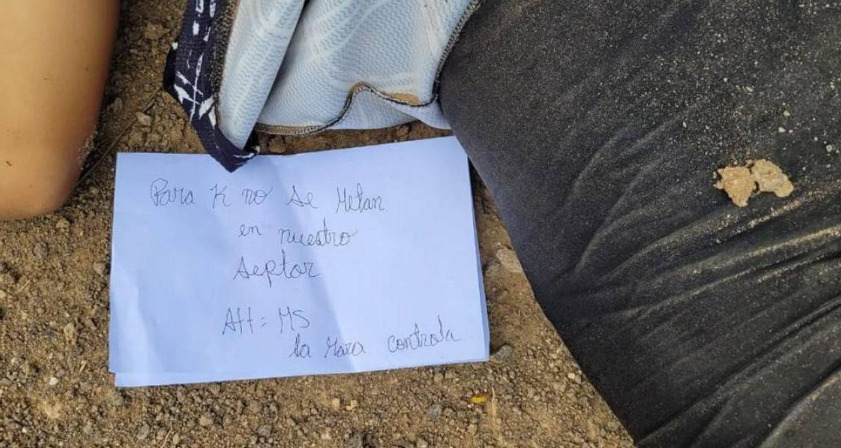 Para K no se Metan
en nuestro
septor
Att: MS
la Mara controla